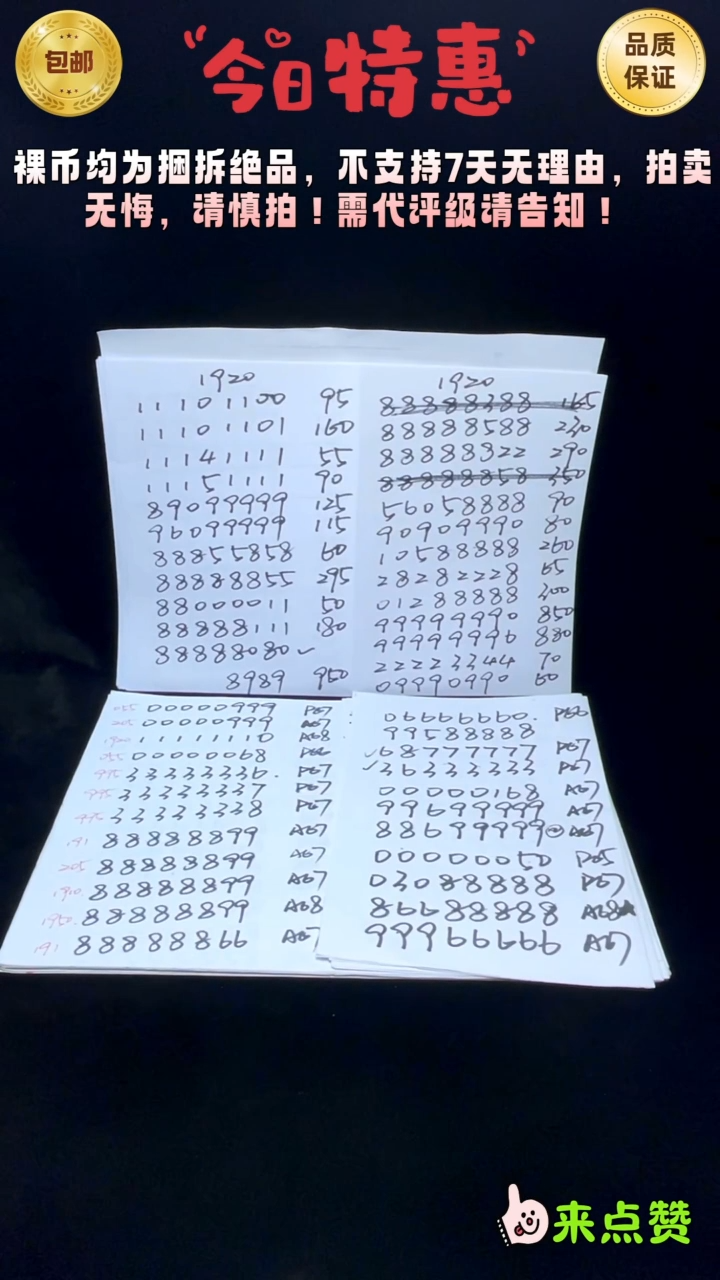 包邮
“今日特惠”
品质
保证
裸币均为捆拆绝品，不支持7天无理由，拍卖
无悔，请慎拍！需代评级请告知！
1920
11101100 95
11101101 160
11141111 55
11151111 90
89099999 125
96099999 115
88855858 60
88888855 295
88000011 50
88888111 180
88888080 ✓
8989 950
1920
88888388 165
88888588 230
88888322 290
88888858 350
56058888 90
90909990 80
10588888 260
28282228 65
01288888 300
99999990 850
99999996 880
22223344 70
09990990 60
055 00000999 P67
205 00000999 A67
1920 11111110 A68
055 00000068 P66
995 33333336. P67
995 33333337 P67
995 33333338 P67
191 88888899 A67
205 88888899 A67
1920 88888899 A67
1950. 88888899 A68
191 88888866 A67
06666660. P66
99588888
✓68777777 P67
✓36333333 P67
00000168 A67
99699999 A67
88699999 A67
00000050 P65
03088888 P67
86688888 A68★
99966666 A67
来点赞